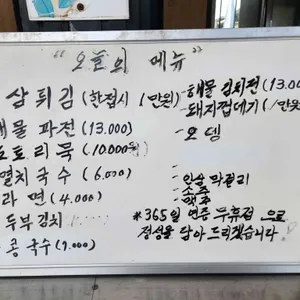 “오늘의 메뉴”
삼튀김 (한접시 1만원)
해물 파전 (13.000)
토토리묵 (10.000원)
멸치국수 (6.000)
라면 (4.000)
두부김치
콩국수 (7.000)
-해물 김치전
-돼지껍데기 (1만원
-오뎅
-
-안살 막걸리
-소주
-맥주
*365일 연중무휴점 으로
정성을 담아 드리겠습니다